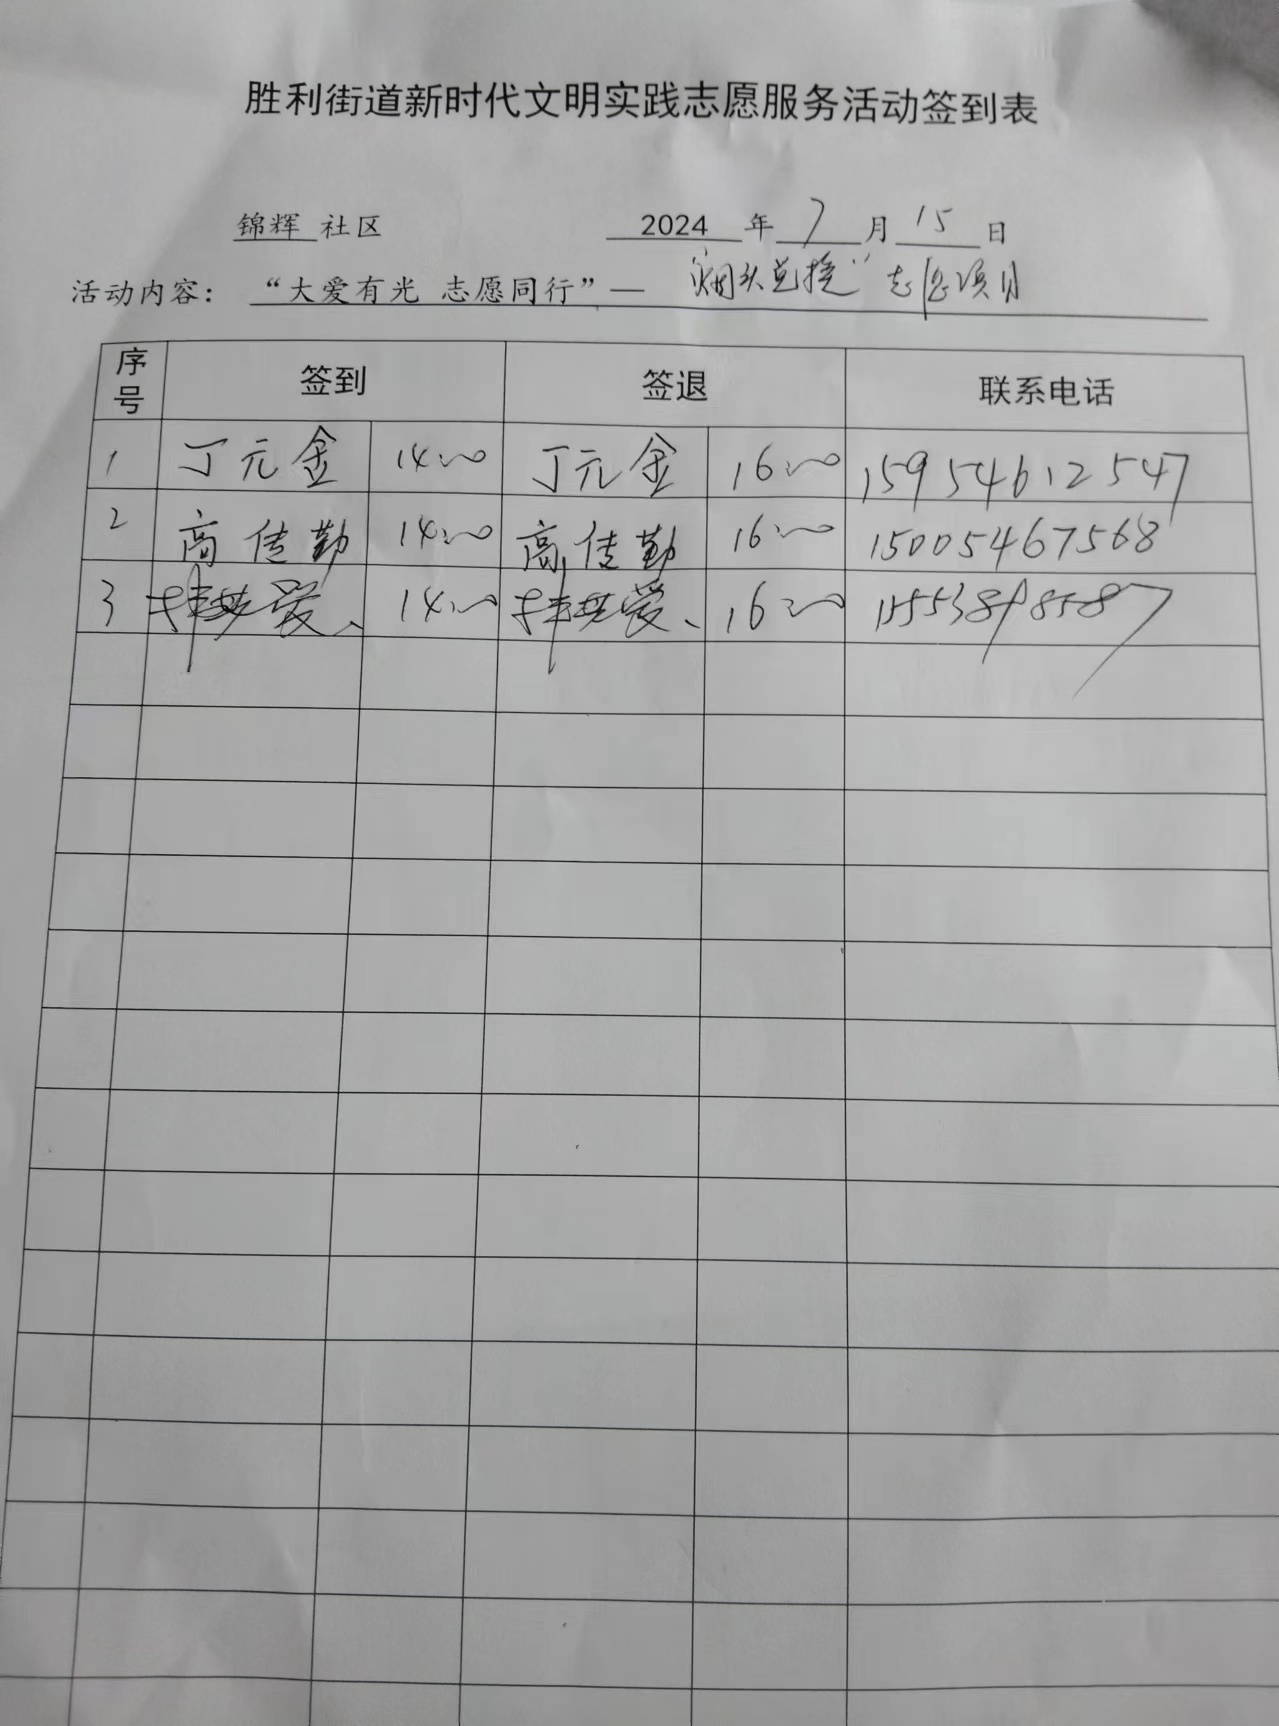 胜利街道新时代文明实践志愿服务活动签到表
锦辉 社区 2024 年 7 月 15 日
活动内容： “大爱有光 志愿同行”— “烟头兑换” 志愿项目
序号 签到 签退 联系电话
1 丁元金 14:00 丁元金 16:00 15954612547
2 高佳勤 14:00 高佳勤 16:00 15005467568
3 14:00 16:00